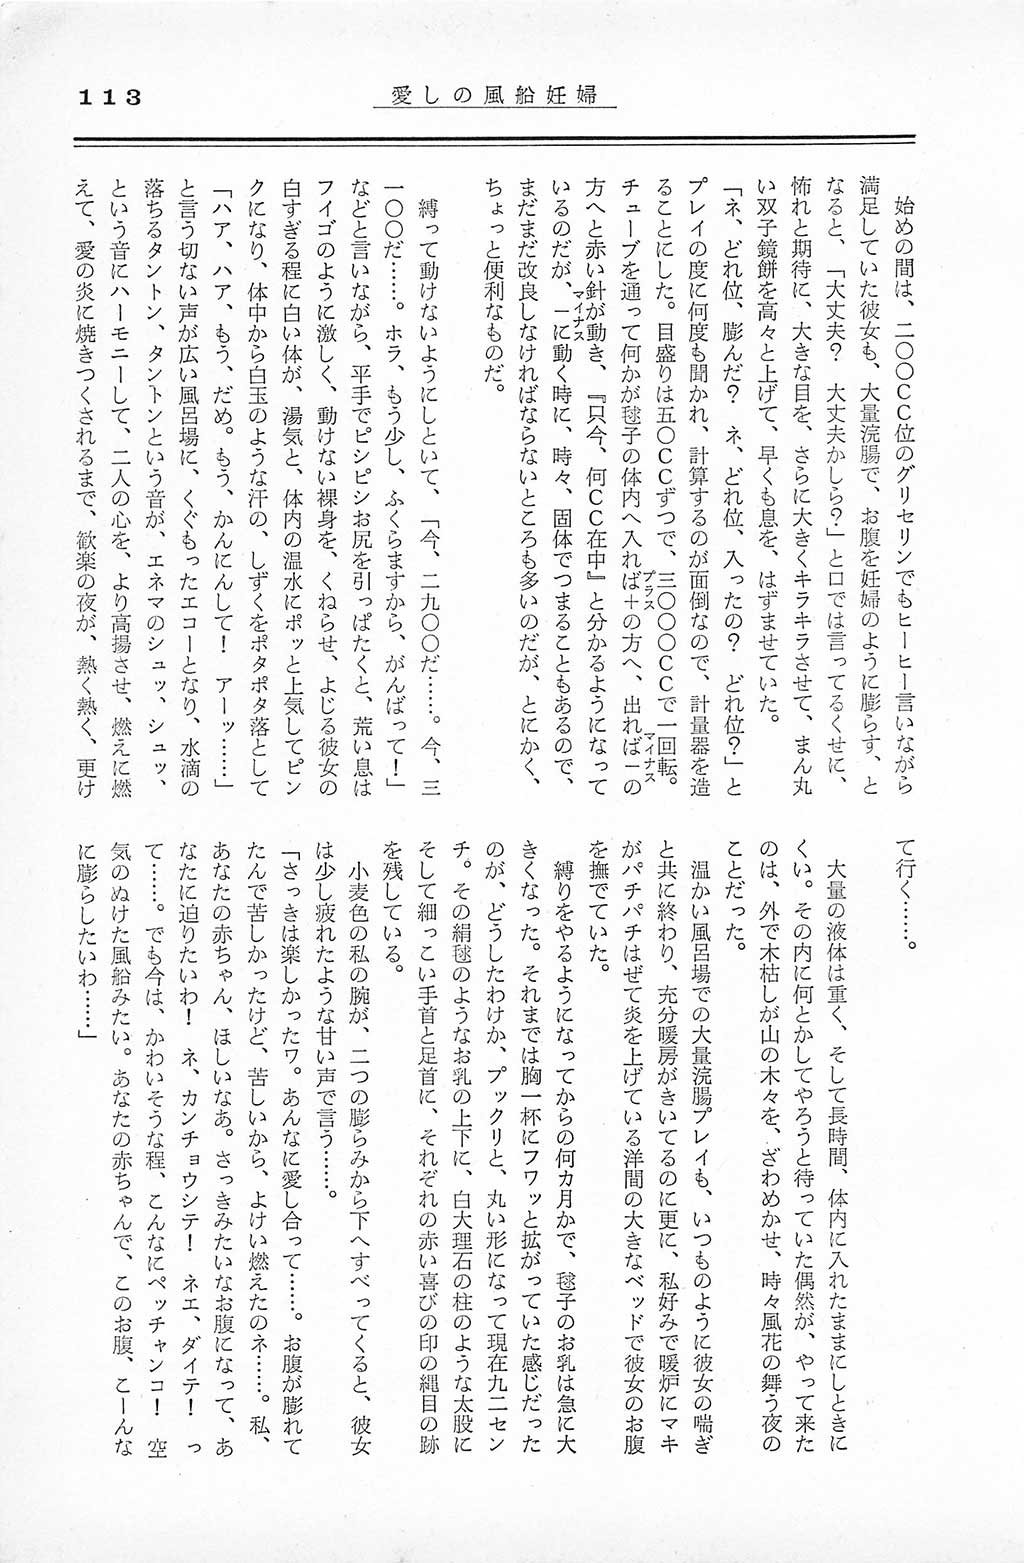 113
愛しの風船妊婦
始めの間は、二〇〇ＣＣ位のグリセリンでもヒーヒー言いながら
満足していた彼女も、大量浣腸で、お腹を妊婦のように膨らす、と
なると、「大丈夫？　大丈夫かしら？」と口では言ってるくせに、
怖れと期待に、大きな目を、さらに大きくキラキラさせて、まん丸
い双子鏡餅を高々と上げて、早くも息を、はずませていた。
「ネ、どれ位、膨んだ？　ネ、どれ位、入ったの？　どれ位？」と
プレイの度に何度も聞かれ、計算するのが面倒なので、計量器を造
ることにした。目盛りは五〇ＣＣずつで、三〇〇〇ＣＣで一回転。
チューブを通って何かが毬子の体内へ入れば＋プラスの方へ、出れば－マイナスの
方へと赤い針が動き、『只今、何ＣＣ在中』と分かるようになって
いるのだが、－マイナスに動く時に、時々、固体でつまることもあるので、
まだまだ改良しなければならないところも多いのだが、とにかく、
ちょっと便利なものだ。
縛って動けないようにしといて、「今、二九〇〇だ……。今、三
一〇〇だ……。ホラ、もう少し、ふくらますから、がんばって！」
などと言いながら、平手でピシピシお尻を引っぱたくと、荒い息は
フイゴのように激しく、動けない裸身を、くねらせ、よじる彼女の
白すぎる程に白い体が、湯気と、体内の温水にポッと上気してピン
クになり、体中から白玉のような汗の、しずくをポタポタ落として
「ハア、ハア、もう、だめ。もう、かんにんして！　アーッ……」
と言う切ない声が広い風呂場に、くぐもったエコーとなり、水滴の
落ちるタントン、タントンという音が、エネマのシュッ、シュッ、
という音にハーモニーして、二人の心を、より高揚させ、燃えに燃
えて、愛の炎に焼きつくされるまで、歓楽の夜が、熱く熱く、更け
て行く……。
大量の液体は重く、そして長時間、体内に入れたままにしときに
くい。その内に何とかしてやろうと待っていた偶然が、やって来た
のは、外で木枯しが山の木々を、ざわめかせ、時々風花の舞う夜の
ことだった。
温かい風呂場での大量浣腸プレイも、いつものように彼女の喘ぎ
と共に終わり、充分暖房がきいてるのに更に、私好みで暖炉にマキ
がパチパチはぜて炎を上げている洋間の大きなベッドで彼女のお腹
を撫でていた。
縛りをやるようになってからの何カ月かで、毬子のお乳は急に大
きくなった。それまでは胸一杯にフワッと拡がっていた感じだった
のが、どうしたわけか、プックリと、丸い形になって現在九二セン
チ。その絹毬のようなお乳の上下に、白大理石の柱のような太股に
そして細っこい手首と足首に、それぞれの赤い喜びの印の縄目の跡
を残している。
小麦色の私の腕が、二つの膨らみから下へすべってくると、彼女
は少し疲れたような甘い声で言う……。
「さっきは楽しかったワ。あんなに愛し合って……。お腹が膨れて
たんで苦しかったけど、苦しいから、よけい燃えたのネ……。私、
あなたの赤ちゃん、ほしいなあ。さっきみたいなお腹になって、あ
なたに迫りたいわ！　ネ、カンチョウシテ！　ネエ、ダイテ！　っ
て……。でも今は、かわいそうな程、こんなにペッチャンコ！　空
気のぬけた風船みたい。あなたの赤ちゃんで、このお腹、こーんな
に膨らしたいわ……」